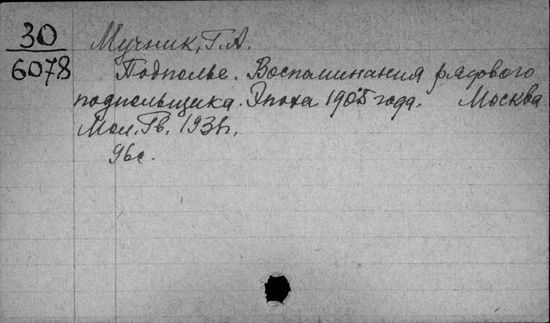 30
6078
Мучник, Г.А.
Подполье. Воспоминания рядового
подпольщика. Эпоха 1905 года. Москва
Мол. Гв. 1931.
96с.